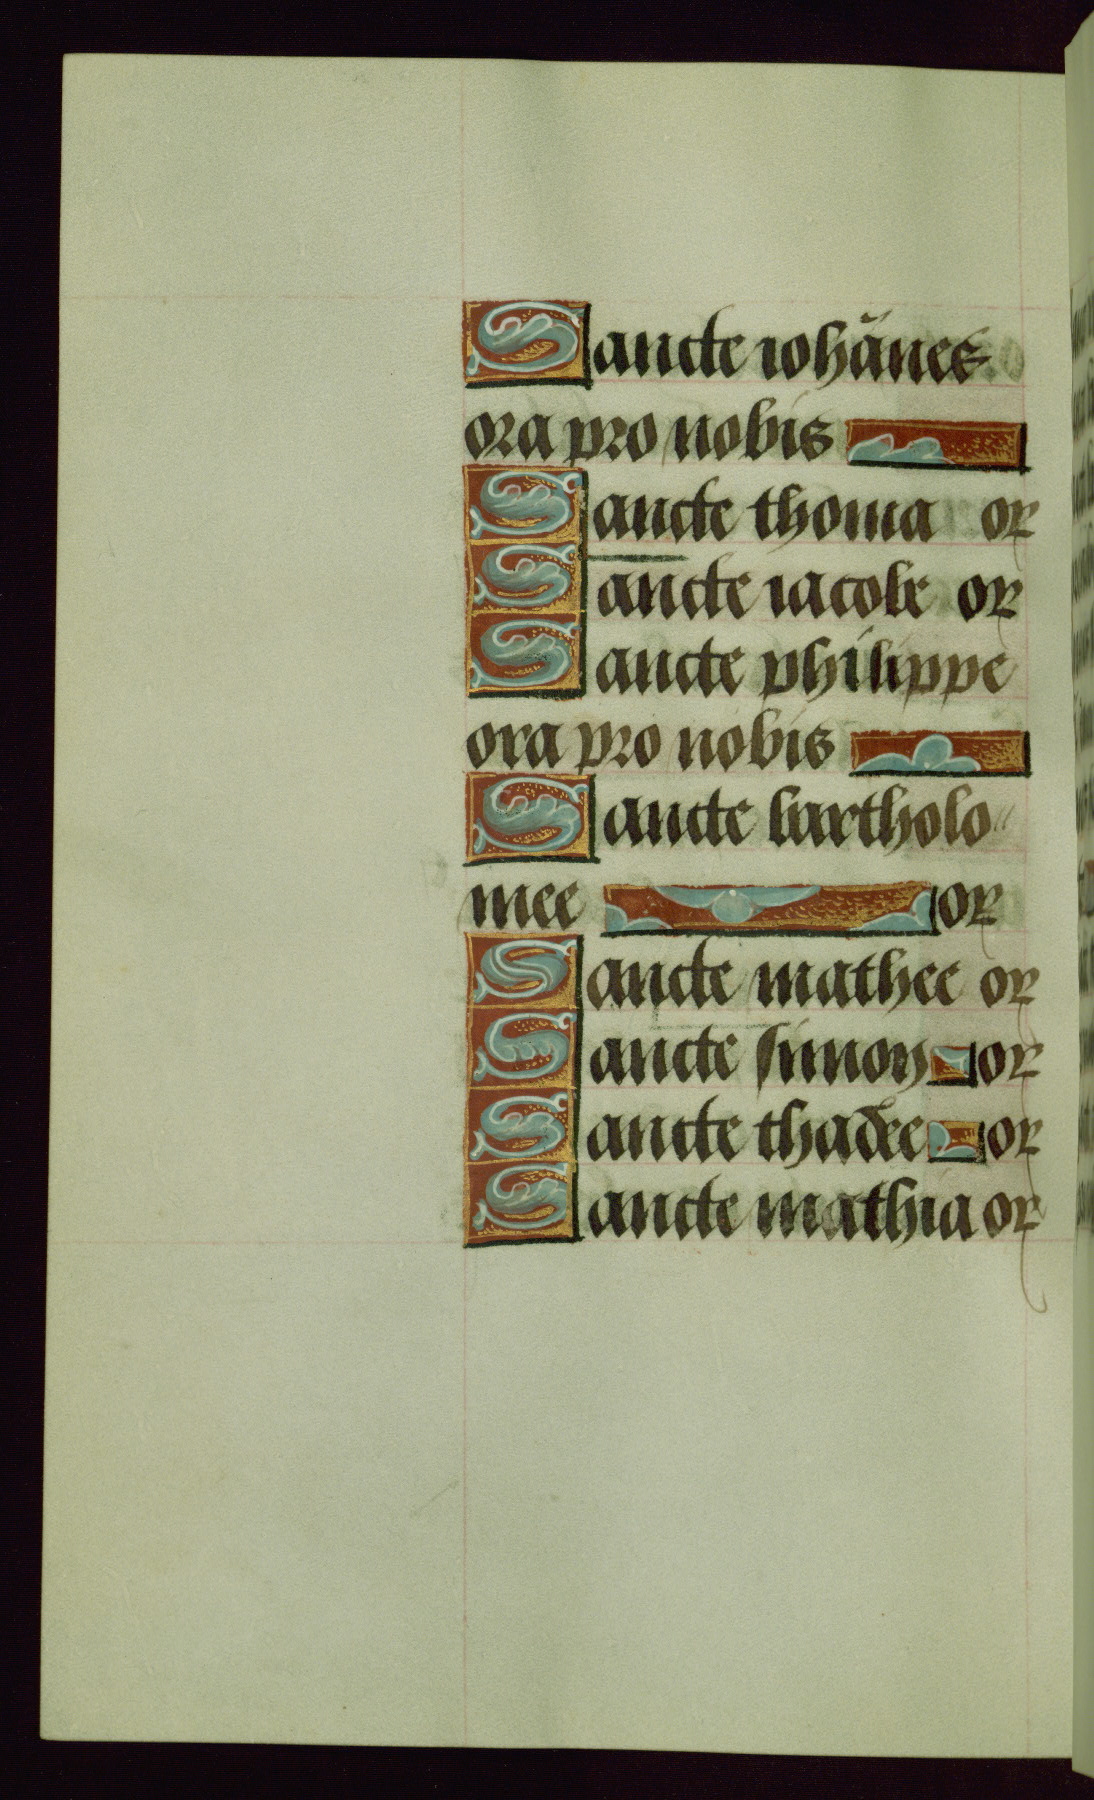 Sancte iohānes
ora pro nobis
Sancte thoma or
Sancte iacobe or
Sancte philippe
ora pro nobis
Sancte bartholo
mee or
Sancte mathee or
Sancte simon or
Sancte thadee or
Sancte mathia or